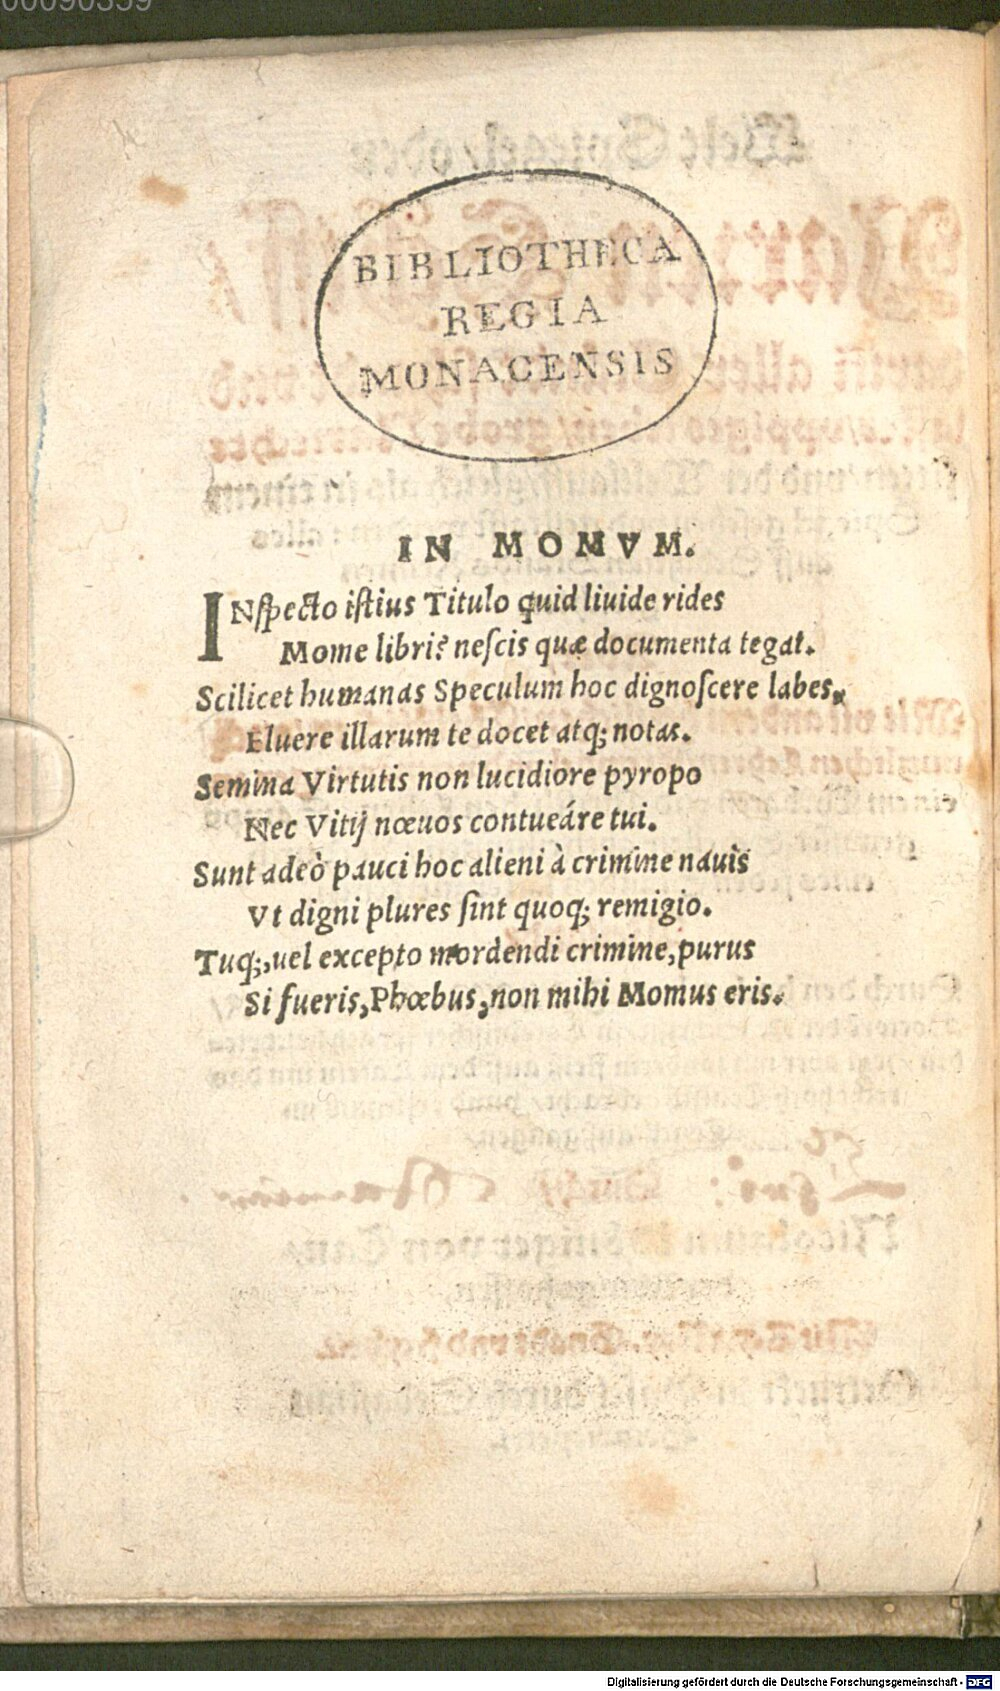 00090359
BIBLIOTHECA
REGIA
MONACENSIS
IN MOMVM.
INſpecto iſtius Titulo quid liuide rides
Mome libri? neſcis quæ documenta tegat.
Scilicet humanas Speculum hoc dignoſcere labes,
Eluere illarum te docet atq; notas.
Semina Virtutis non lucidiore pyropo
Nec Vitij nœuos contueáre tui.
Sunt adeò pauci hoc alieni à crimine nauis
Vt digni plures ſint quoq; remigio.
Tuq;, uel excepto mordendi crimine, purus
Si fueris, Phœbus, non mihi Momus eris.
Digitalisierung gefördert durch die Deutsche Forschungsgemeinschaft - DFG